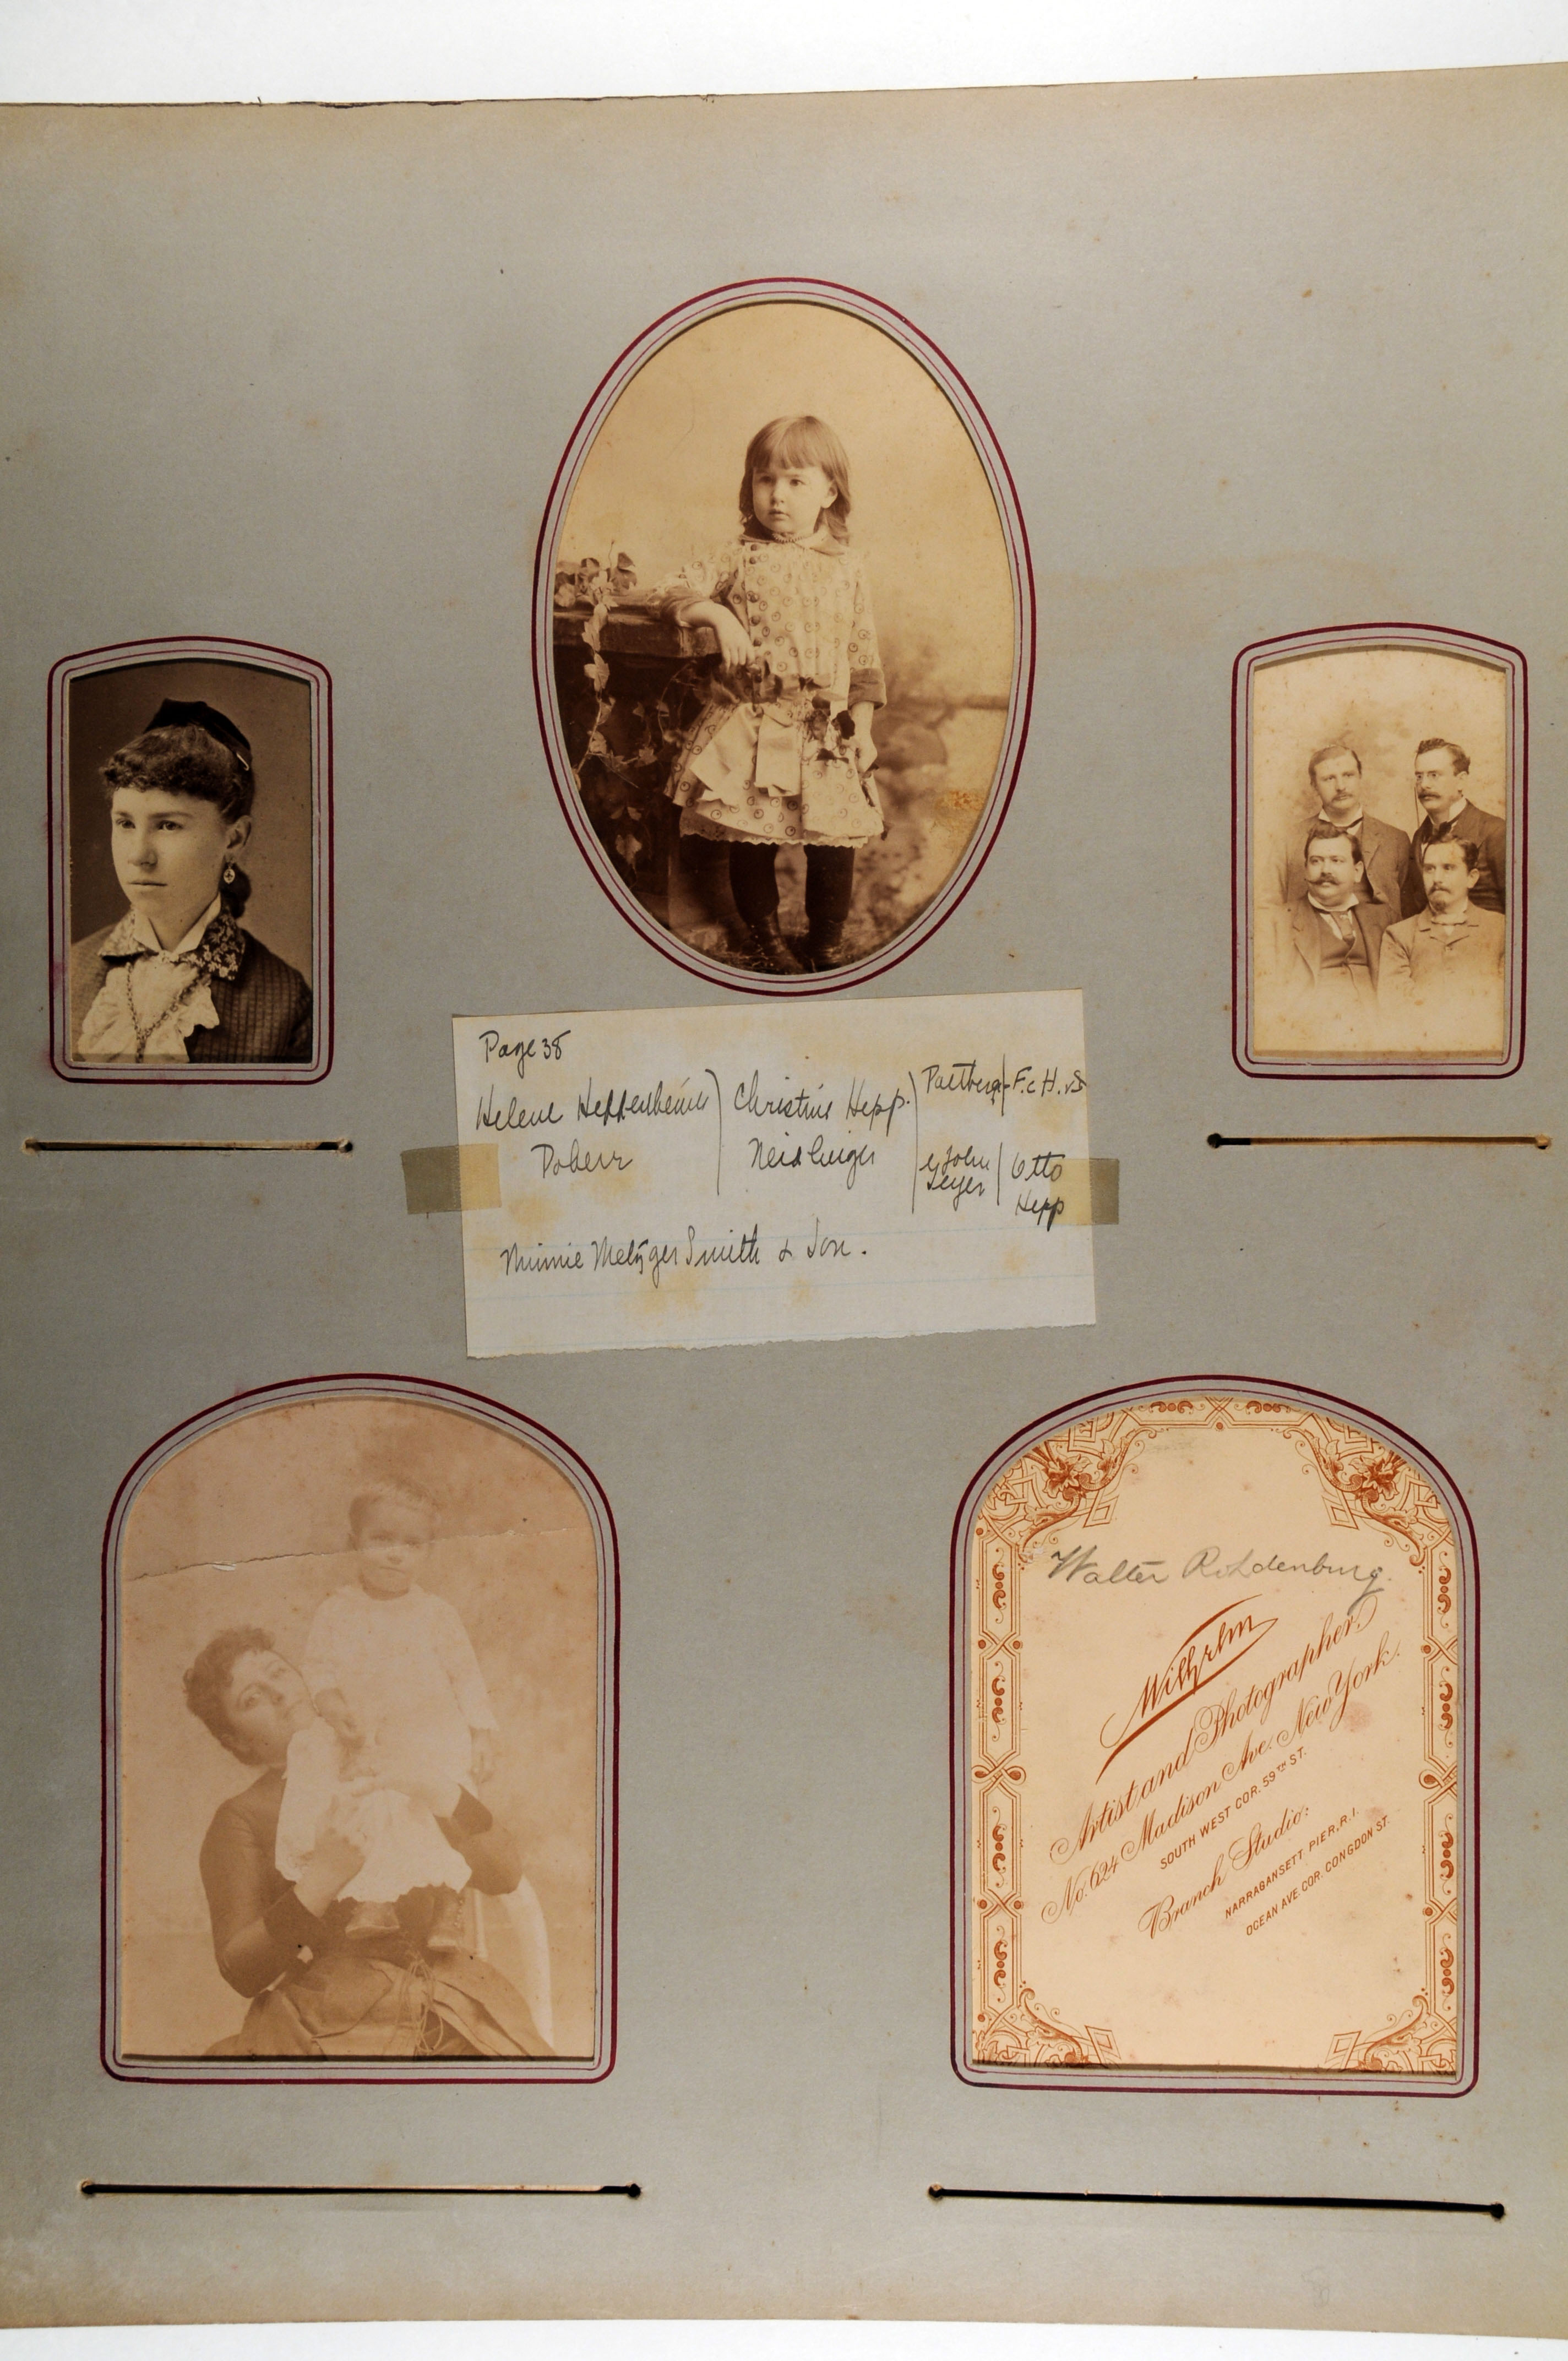 Page 38
Helene Heppenheimer
Christine Hepp.
F. c H. v S
Doherr
John
Geyer
Otto
Hepp
Minnie Metzger Smith & Son.
Walter Rohdenburg.
Wilhelm
Artist and Photographer,
No. 624 Madison Ave. New York.
SOUTH WEST COR. 59TH ST.
Branch Studio:
NARRAGANSETT PIER, R.I.
OCEAN AVE. COR. CONGDON ST.